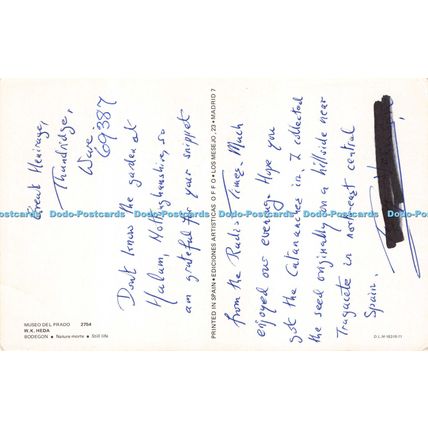 Great Henirage,
Thundridge,
Ware.
69387
Don't know the garden at
Halam, Nottinghamshire, so
am grateful for your snippet
from the Radio Times. Much
enjoyed our evening. Hope you
got the Catananches in. I collected
the seed originally on a hillside near
Tragacete in north-east central
Spain.
MUSEO DEL PRADO 2754
W.K. HEDA
BODEGON • Nature morte • Still life
PRINTED IN SPAIN • EDICIONES ARTISTICAS OFFO • LOS MESEJO, 23 • MADRID 7
Dodo-Postcards Dodo-Postcards Dodo-Postcards Dodo-Postcards